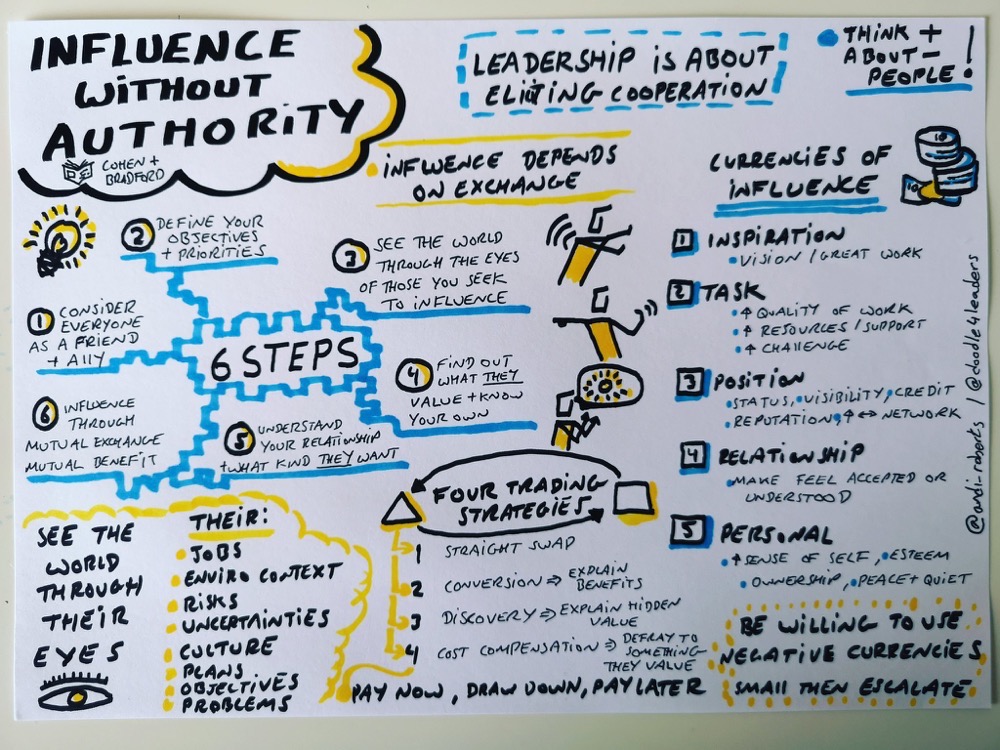 INFLUENCE
WITHOUT
AUTHORITY
COHEN +
BRADFORD
LEADERSHIP IS ABOUT
ELICITING COOPERATION
THINK +
ABOUT -
PEOPLE!
INFLUENCE DEPENDS
ON EXCHANGE
6 STEPS
1 CONSIDER
EVERYONE
AS A FRIEND
+ ALLY
2 DEFINE YOUR
OBJECTIVES
+ PRIORITIES
3 SEE THE WORLD
THROUGH THE EYES
OF THOSE YOU SEEK
TO INFLUENCE
4 FIND OUT
WHAT THEY
VALUE + KNOW
YOUR OWN
5 UNDERSTAND
YOUR RELATIONSHIP
+ WHAT KIND THEY WANT
6 INFLUENCE
THROUGH
MUTUAL EXCHANGE
MUTUAL BENEFIT
SEE THE
WORLD
THROUGH
THEIR
EYES
THEIR:
JOBS
ENVIRO CONTEXT
RISKS
UNCERTAINTIES
CULTURE
PLANS
OBJECTIVES
PROBLEMS
FOUR TRADING
STRATEGIES
1 STRAIGHT SWAP
2 CONVERSION ⇒ EXPLAIN
BENEFITS
3 DISCOVERY ⇒ EXPLAIN HIDDEN
VALUE
4 COST COMPENSATION ⇒ DEFRAY TO
SOMETHING
THEY VALUE
PAY NOW, DRAW DOWN, PAY LATER
CURRENCIES OF
INFLUENCE
10
10
1 INSPIRATION
• VISION / GREAT WORK
2 TASK
• ↑ QUALITY OF WORK
• ↑ RESOURCES / SUPPORT
• ↑ CHALLENGE
3 POSITION
• STATUS, • VISIBILITY, • CREDIT
REPUTATION, ↑ ↔ NETWORK
4 RELATIONSHIP
• MAKE FEEL ACCEPTED OR
UNDERSTOOD
5 PERSONAL
• ↑ SENSE OF SELF, • ESTEEM
• OWNERSHIP, • PEACE + QUIET
BE WILLING TO USE
NEGATIVE CURRENCIES
SMALL THEN ESCALATE
@andi-roberts / @doodle4leaders